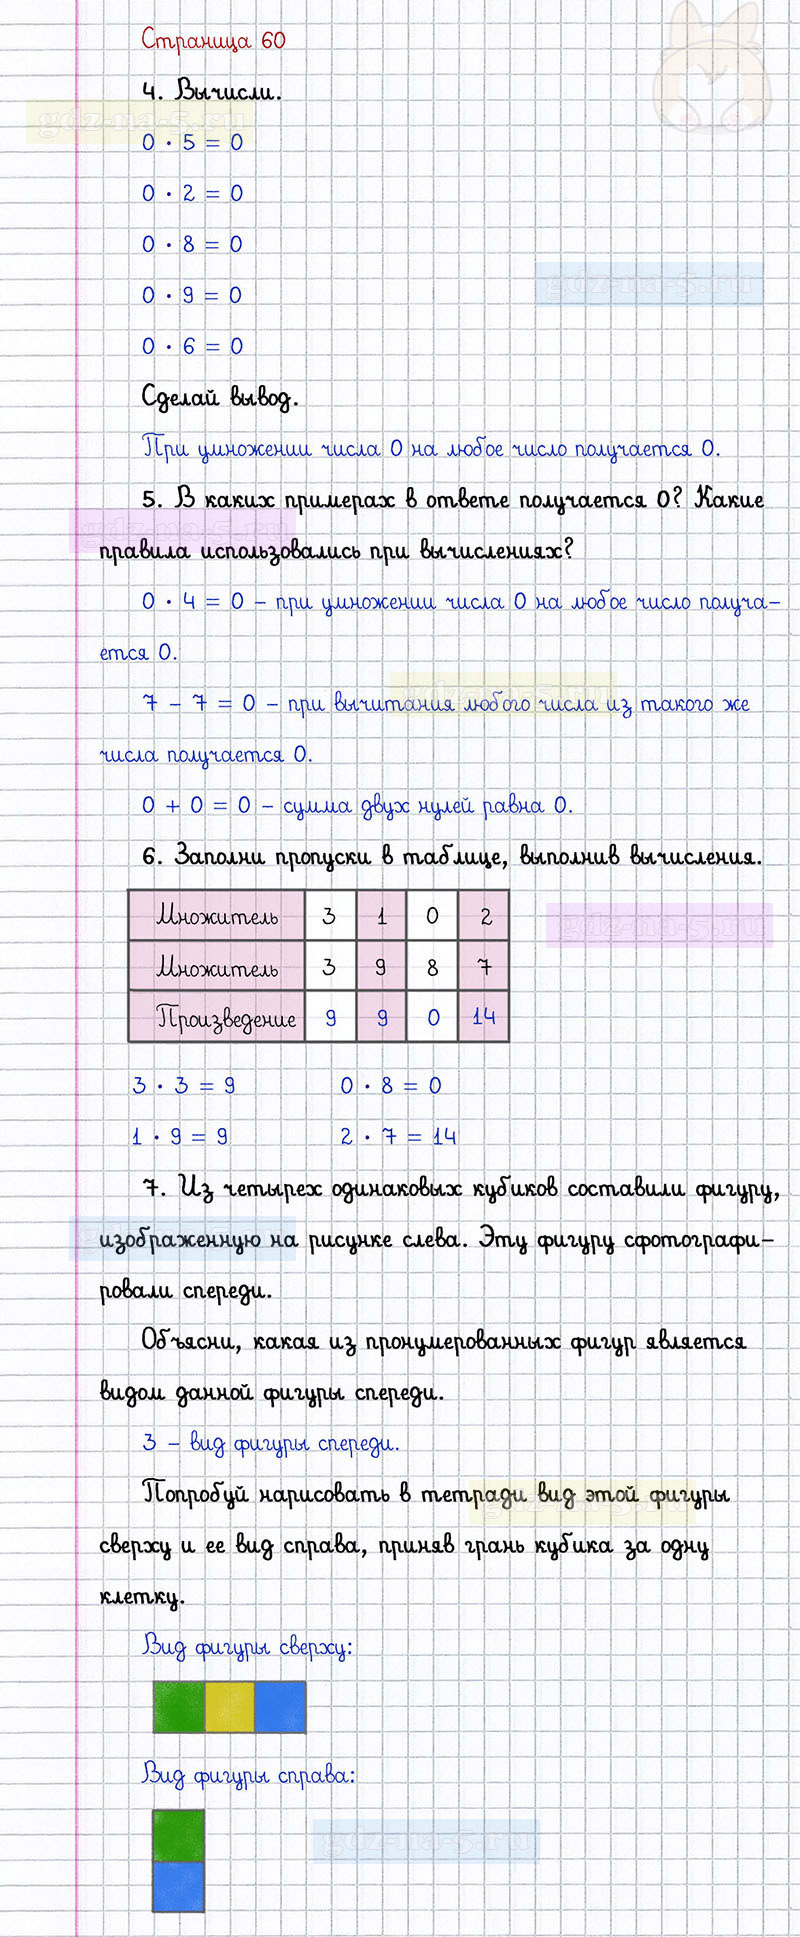 Страница 60
4. Вычисли.
gdz-na-5.ru
0 · 5 = 0
0 · 2 = 0
0 · 8 = 0
gdz-na-5.ru
0 · 9 = 0
0 · 6 = 0
Сделай вывод.
При умножении числа 0 на любое число получается 0.
5. В каких примерах в ответе получается 0? Какие
gdz-na-5.ru
правила использовались при вычислениях?
0 · 4 = 0 – при умножении числа 0 на любое число получа-
ется 0.
gdz-na-5.ru
7 – 7 = 0 – при вычитания любого числа из такого же
числа получается 0.
0 + 0 = 0 – сумма двух нулей равна 0.
6. Заполни пропуски в таблице, выполнив вычисления.
Множитель 3 1 0 2
gdz-na-5.ru
Множитель 3 9 8 7
Произведение 9 9 0 14
3 · 3 = 9 0 · 8 = 0
1 · 9 = 9 2 · 7 = 14
7. Из четырех одинаковых кубиков составили фигуру,
gdz-na-5.ru
изображенную на рисунке слева. Эту фигуру сфотографи-
ровали спереди.
Объясни, какая из пронумерованных фигур является
видом данной фигуры спереди.
3 – вид фигуры спереди.
Попробуй нарисовать в тетради вид этой фигуры
gdz-na-5.ru
сверху и ее вид справа, приняв грань кубика за одну
клетку.
Вид фигуры сверху:
Вид фигуры справа:
gdz-na-5.ru